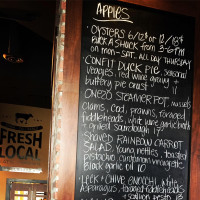 APPLES
- OYSTERS 6/12$ or 12/18$
BUCK A SHUCK from 3-6pm
on MON-SAT. ALL DAY THURSDAY
- CONFIT DUCK PIE, seasonal
veggies, red wine gravy
buttery pie crust 11
- ONE20 STEAMER POT, mussels
Clams, Cod, prawns, foraged
fiddleheads, white wine garlic broth
grilled sourdough 17
- SHAVED RAINBOW CARROT
SALAD, young nettles, toasted
pistachio, cinnamon vinaigrette
Black garlic oil 10
- LEEK & CHIVE GNOCCHI with
Asparagus, foraged fiddleheads
scallion pesto 13
FRESH
LOCAL